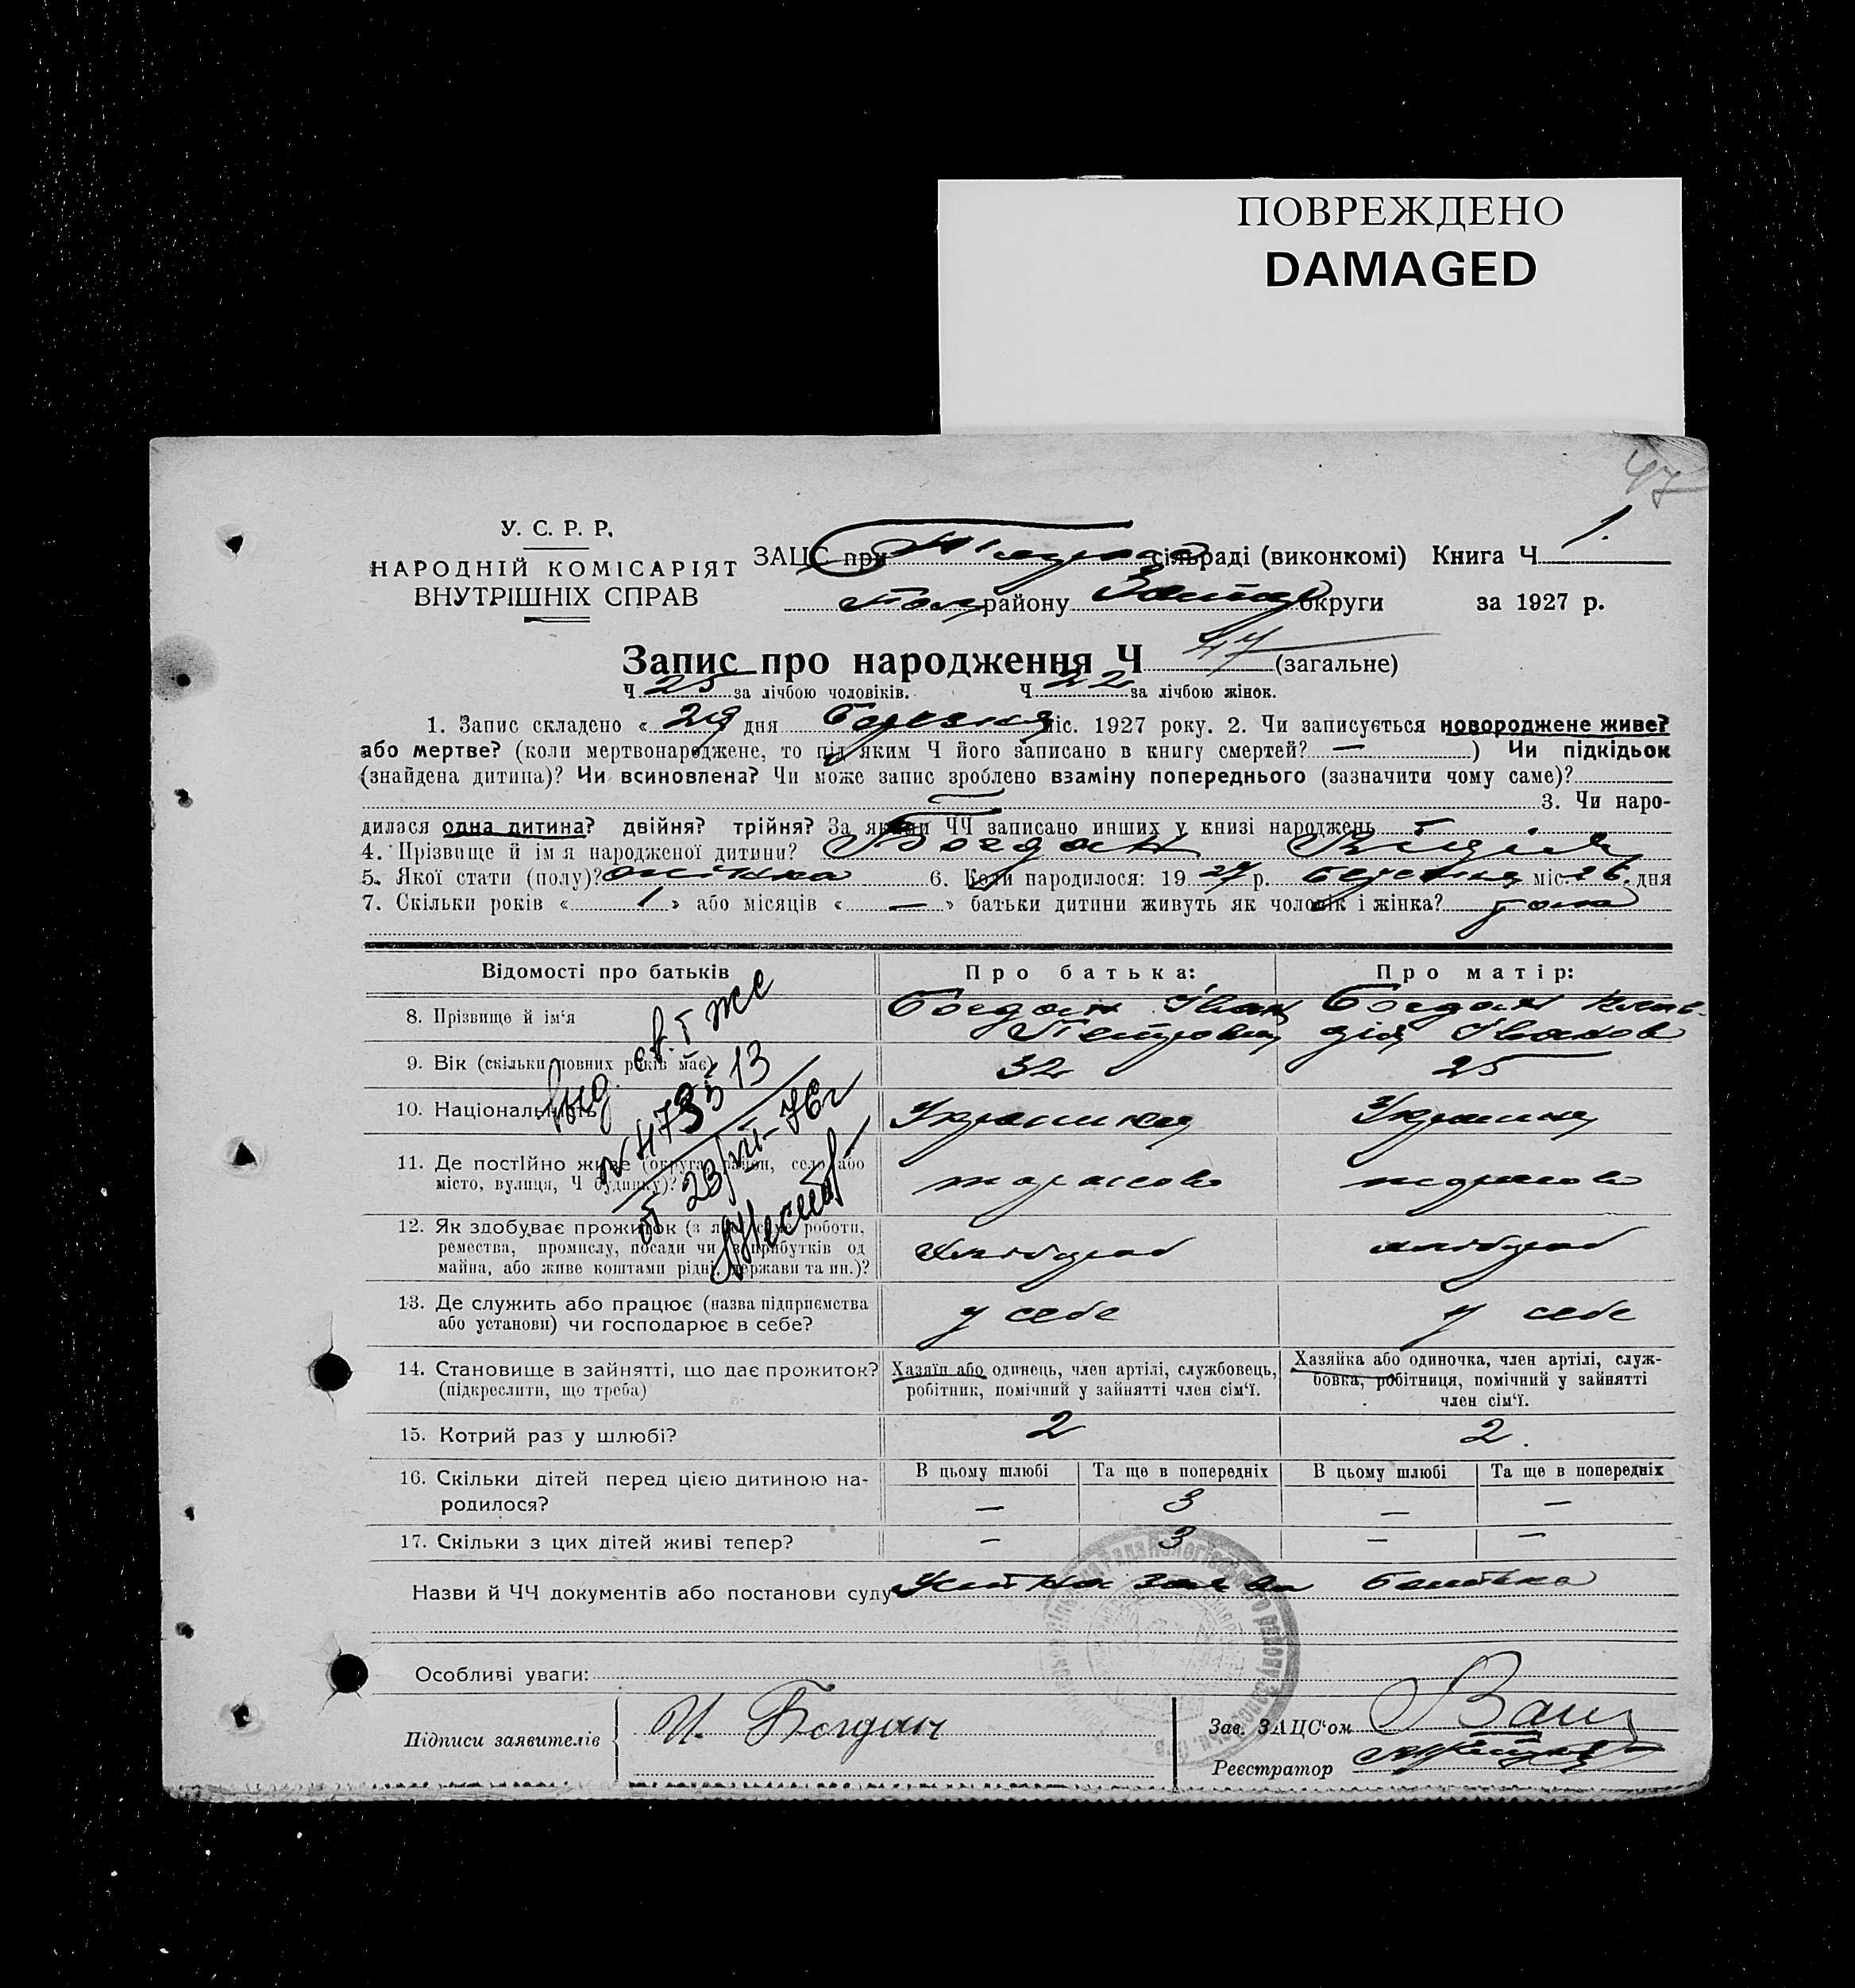 ПОВРЕЖДЕНО
DAMAGED
47
У. С. Р. Р.
НАРОДНІЙ КОМІСАРІЯТ
ВНУТРІШНІХ СПРАВ
ЗАЦС при сільраді (виконкомі) Книга Ч 1.
району округи за 1927 р.
Запис про народження Ч 47 (загальне)
Ч 25 за лічбою чоловіків. Ч 22 за лічбою жінок.
1. Запис складено « 29 дня березня міс. 1927 року. 2. Чи записується новороджене живе?
або мертве? (коли мертвонароджене, то під яким Ч його записано в книгу смертей? — ) Чи підкідьок
(знайдена дитина)? Чи всиновлена? Чи може запис зроблено взаміну попереднього (зазначити чому саме)?
3. Чи наро-
дилася одна дитина? двійня? трійня? За якими ЧЧ записано инших у книзі народжень
4. Прізвище й ім'я народженої дитини? Богдан
5. Якої стати (полу)? жінка 6. Коли народилося: 19 27 р. березня міс. 26. дня
7. Скільки років « 1 » або місяців « — » батьки дитини живуть як чоловік і жінка?
Відомості про батьків Про батька: Про матір:
8. Прізвище й ім'я Богдан Іван Богдан Клав-
Петрович дія Іванов
9. Вік (скільки повних років має) 32 25
10. Національність Українец Українка
11. Де постійно живе (округа, район, село або
місто, вулиця, Ч будинку)? тарасово тарасово
12. Як здобуває прожиток (з якої саме роботи,
ремества, промислу, посади чи з прибутків од
майна, або живе коштами рідні, держави та ин.)? хлібороб хлібороб
13. Де служить або працює (назва підприємства
або установи) чи господарює в себе? у себе у себе
14. Становище в зайнятті, що дає прожиток?
(підкреслити, що треба)
Хазяїн або одинець, член артілі, службовець,
робітник, помічний у зайнятті член сім'ї.
Хазяйка або одиночка, член артілі, служ-
бовка, робітниця, помічний у зайнятті
член сім'ї.
15. Котрий раз у шлюбі? 2 2.
16. Скільки дітей перед цією дитиною на-
родилося?
В цьому шлюбі Та ще в попередніх В цьому шлюбі Та ще в попередніх
— 3 — —
17. Скільки з цих дітей живі тепер? — 3 — —
Назви й ЧЧ документів або постанови суду Устна заява батька
Особливі уваги:
Підписи заявителів И. Богдан
Зав. ЗАЦС'ом
Реєстратор